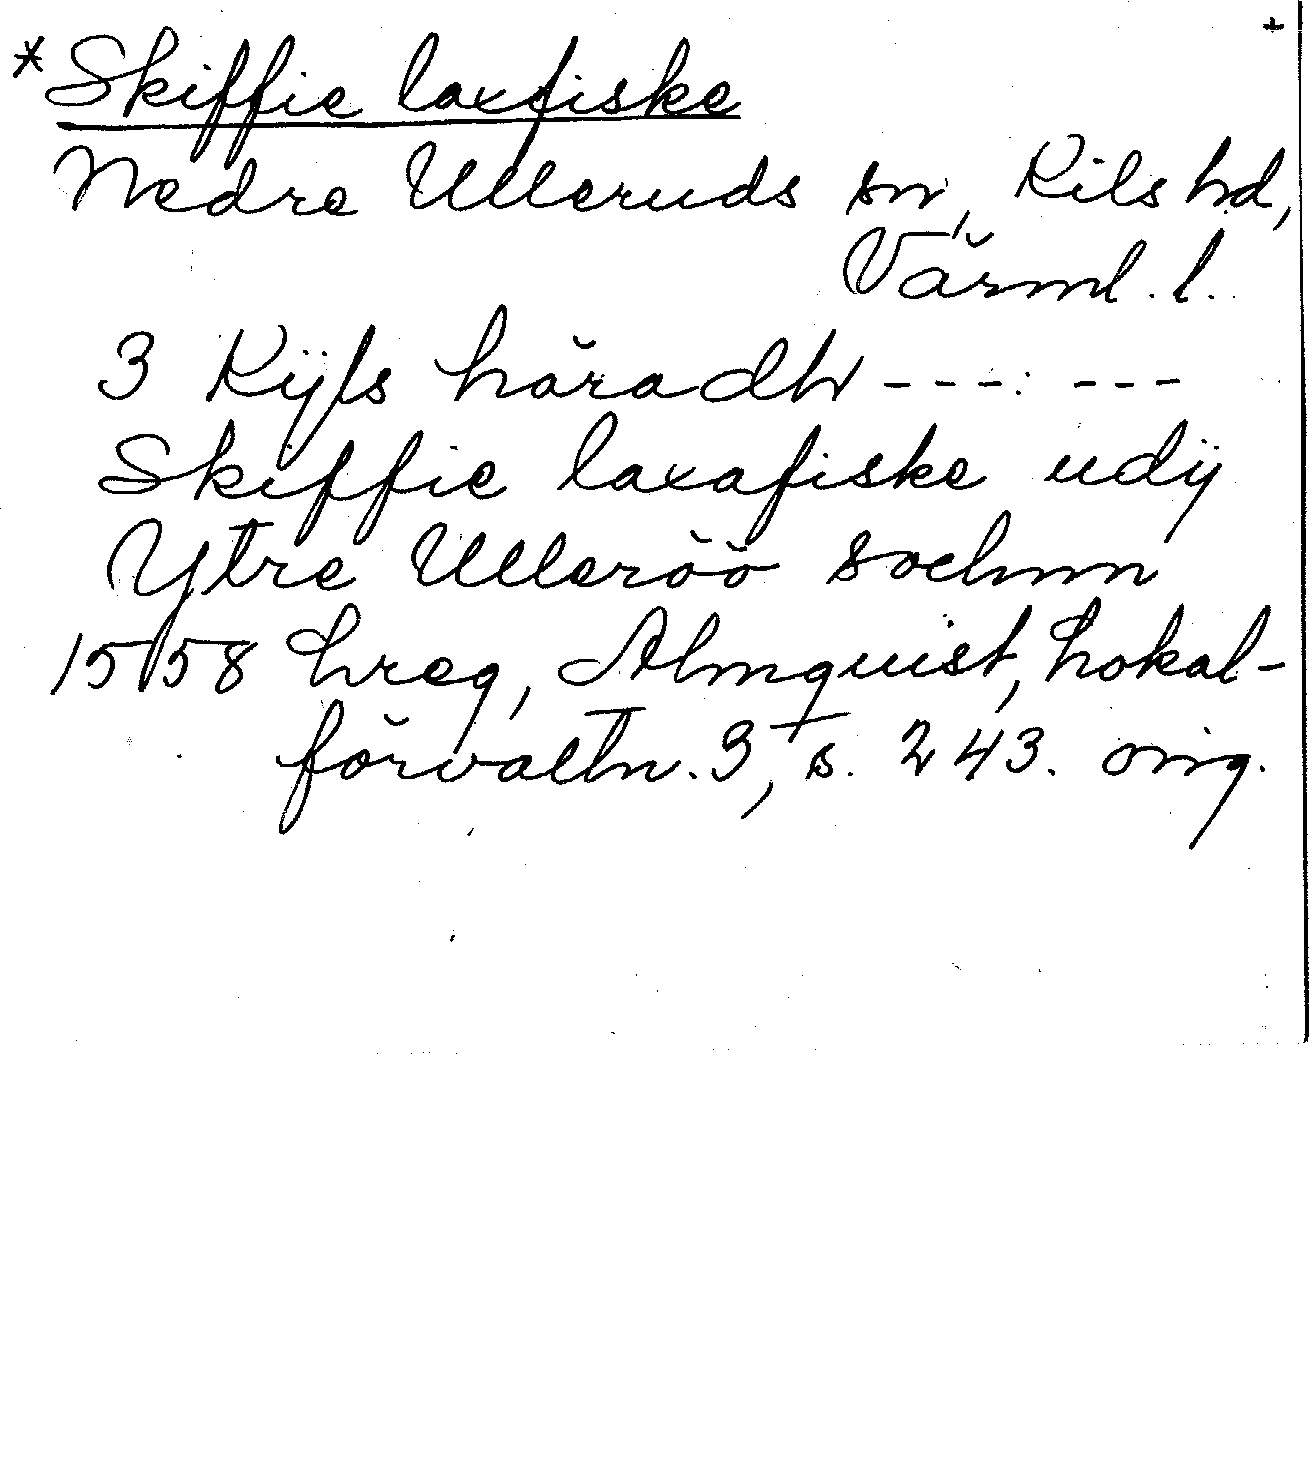 +
*Skiffie laxfiske
Nedre Ulleruds sn, Kils hd,
Värml. l.
3 Kijls häradh ---: ---
Skiffie laxafiske udij
Ytre Ulleröö sochnn
1558 Lreg, Almquist, Lokal-
förvaltn. 3, s. 243. orig.